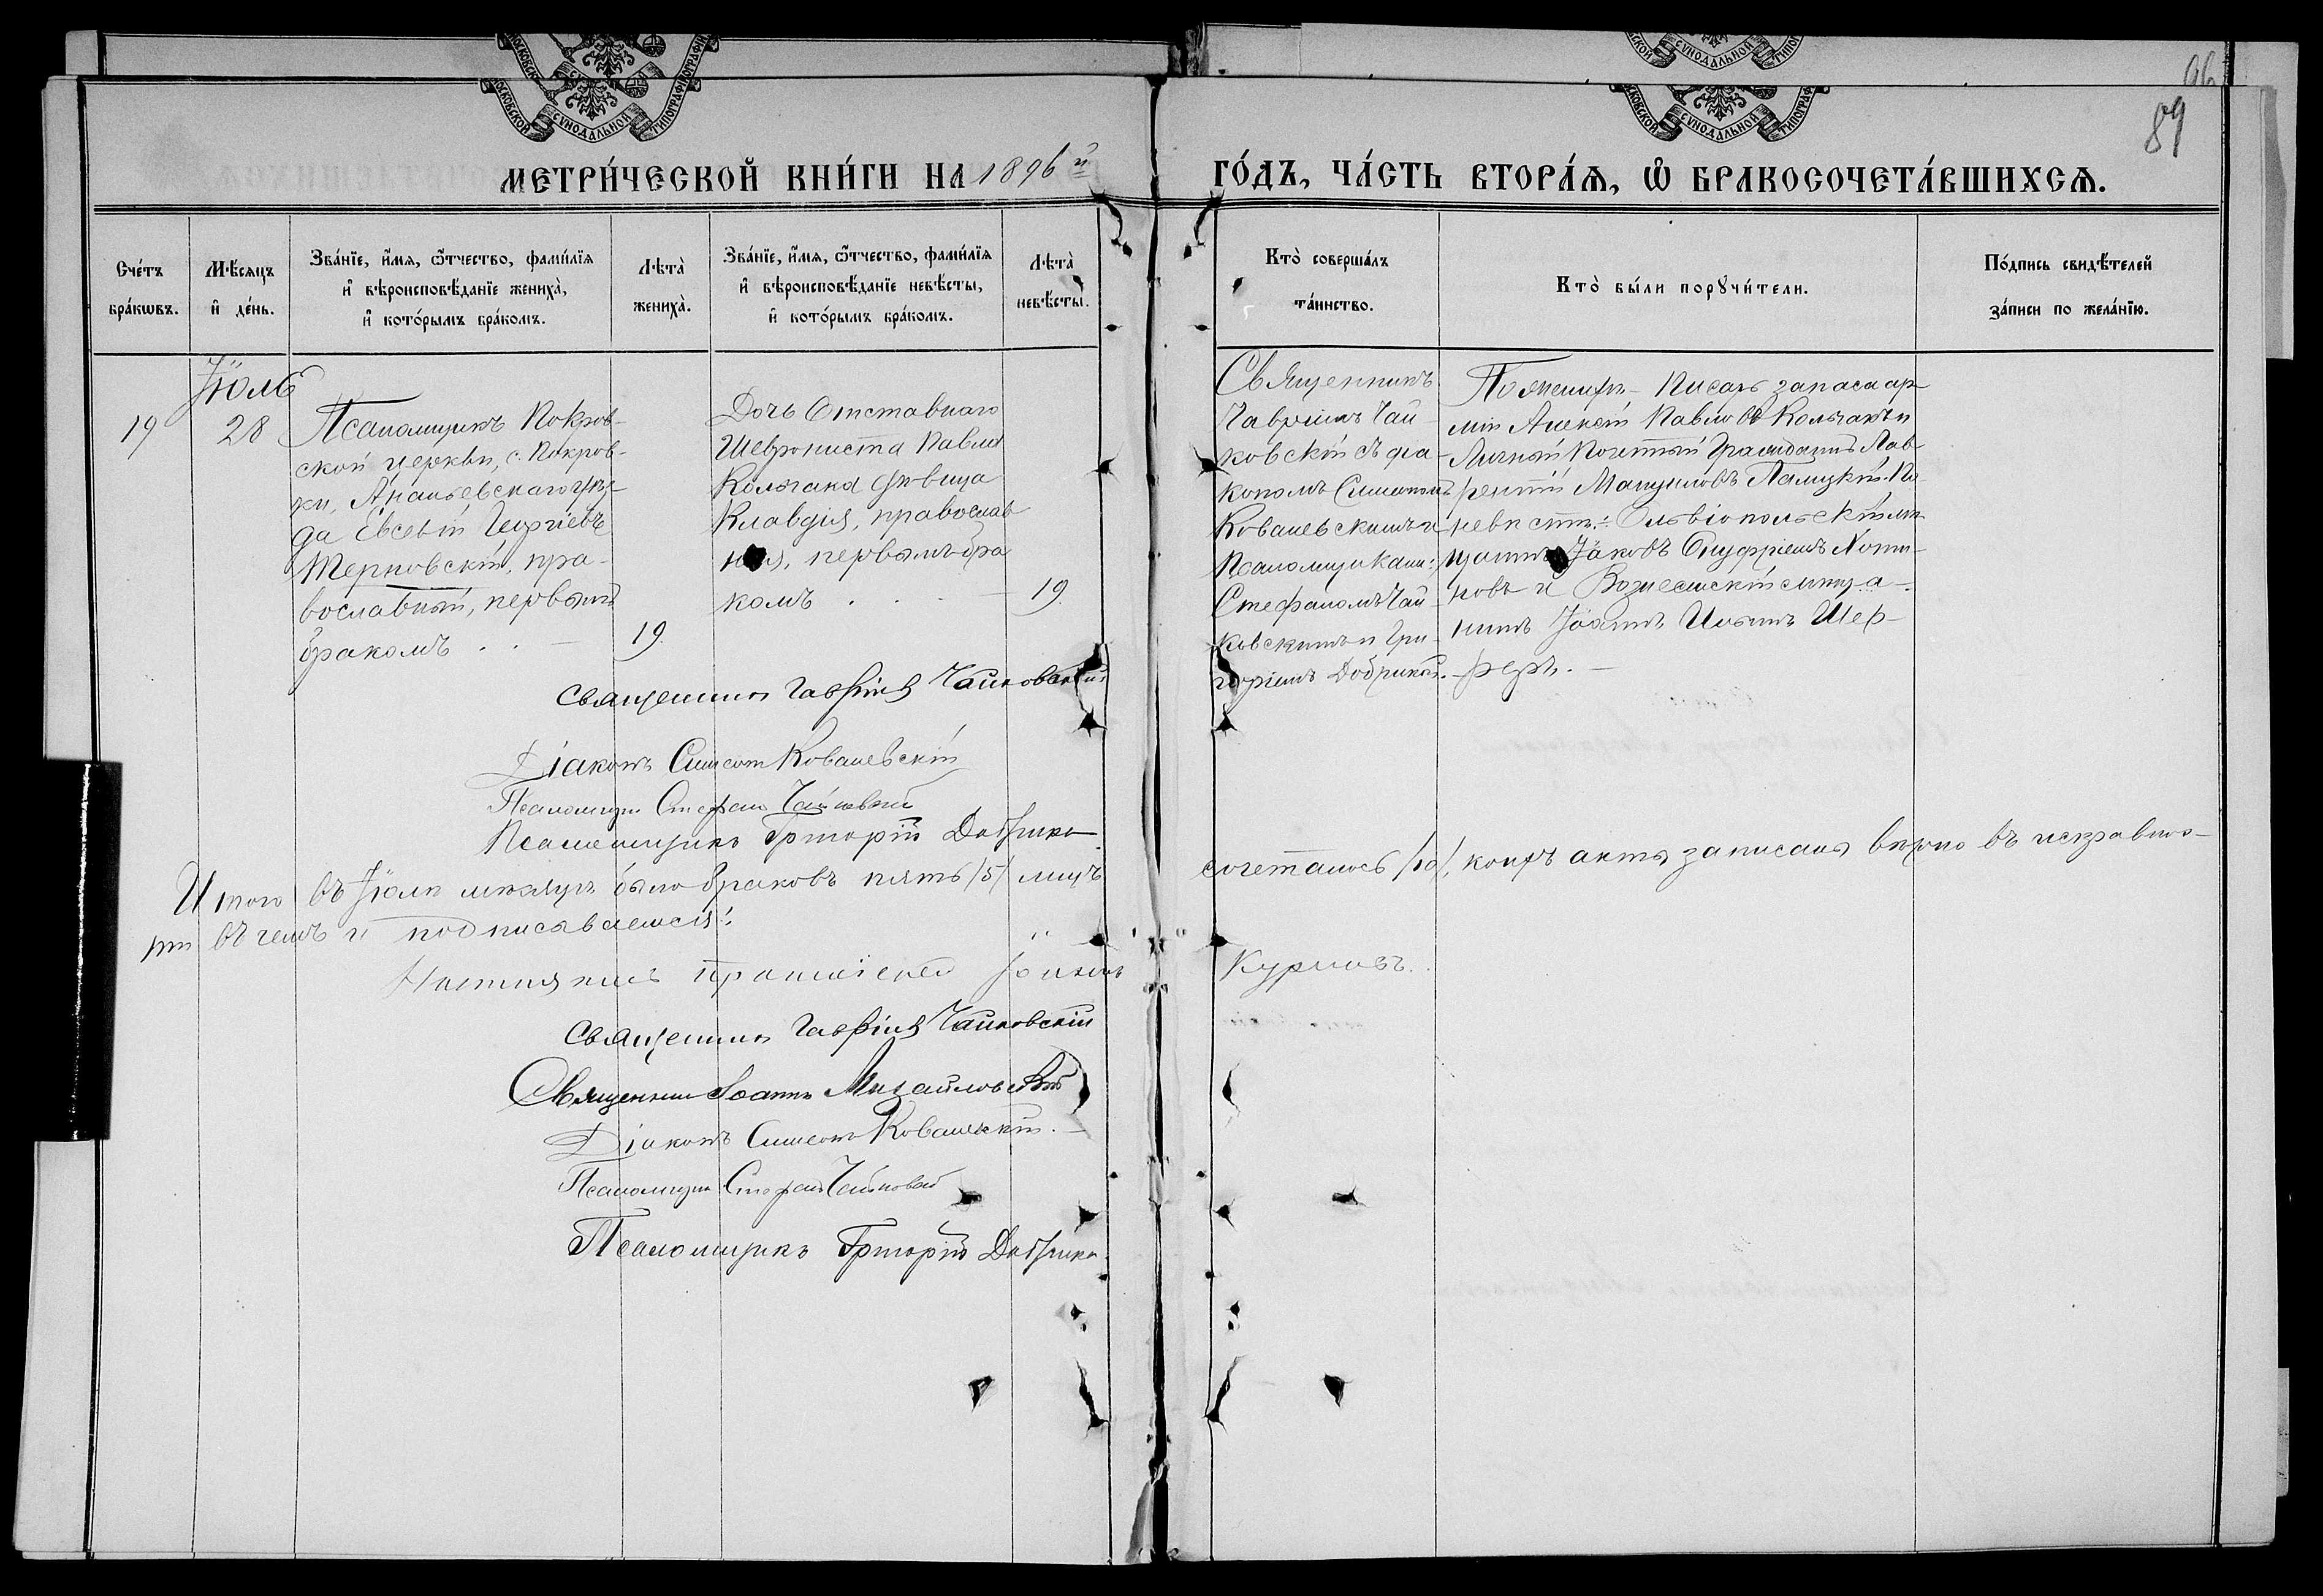 МОСКОВСКОЙ СѴНОДАЛЬНОЙ ТИПОГРАФІИ
МОСКОВСКОЙ СѴНОДАЛЬНОЙ ТИПОГРАФІИ
89
МЕТРИ́ЧЕСКОЙ КНИ́ГИ НА 1896й
ГО́ДЪ, ЧА́СТЬ ВТОРА́Ѧ, Ѽ БРАКОСОЧЕТА́ВШИХСѦ.
Сче́тъ
бра́кѡвъ.
Мѣ́сяцъ
и҆ де́нь.
Зва́нїе, и҆́мя, ѻ҆́тчество, фами́лїя
и҆ вѣроисповѣ́данїе жениха̀,
и҆ кото́рымъ бра́комъ.
Лѣта̀
жениха̀.
Зва́нїе, и҆́мя, ѻ҆́тчество, фами́лїя
и҆ вѣроисповѣ́данїе невѣ́сты,
и҆ кото́рымъ бра́комъ.
Лѣта̀
невѣ́сты.
Кто̀ соверша́лъ
та́инство.
Кто̀ бы́ли порꙋчи́тели.
По́дпись свидѣ́телей
за́писи по жела́нїю.
19
Іюль
28
Псаломщикъ Покров-
ской церкви, с. Покров-
ки, Ананьевскаго уѣз-
да Евсевій Георгіевъ
Терновскій, пра-
вославный, первымъ
бракомъ . . —
19
Дочь Отставнаго
Шеврониста Павла
Колчака девица
Клавдія, православ
ная, первымъ бра
комъ . . . —
19.
Священникъ
Гавріилъ Чай-
ковскій съ діа-
кономъ Симеономъ
Ковалевскимъ и
Псаломщиками:
Стефаномъ Чай-
ковскимъ и Гри-
горіемъ Добрикой.
По женихѣ — Писарь запаса ар
міи Алексѣй Павловъ Колчакъ и
Личный Почетный Гражданинъ Лав-
рентій Мануиловъ Палицкій. По
невѣстѣ: Ольвіопольскій мѣ
щанинъ Іаковъ Онуфріевъ Хоти-
новъ и Вознесенскій мѣща-
нинъ Іоаннъ Ивановъ Шеф-
феръ. —
Священникъ Гавріилъ Чайковскій
Діаконъ Симеонъ Ковалевскій
Псаломщикъ Стефанъ Чайковскій
Псаломщикъ Григорій Добрика
Итого въ Іюлѣ мѣсяцѣ было браковъ пять /5/ лицъ
сочеталось /10/, коихъ актъ записанъ вѣрно въ исправнос-
ти въ чемъ и подписываемся:
Настоятель Протоіерей Іоаннъ
Курловъ.
Священникъ Гавріилъ Чайковскій
Священникъ Іоаннъ Михайловскій
Діаконъ Симеонъ Ковалевскій. —
Псаломщикъ Стефанъ Чайковскій
Псаломщикъ Григорій Добрика.